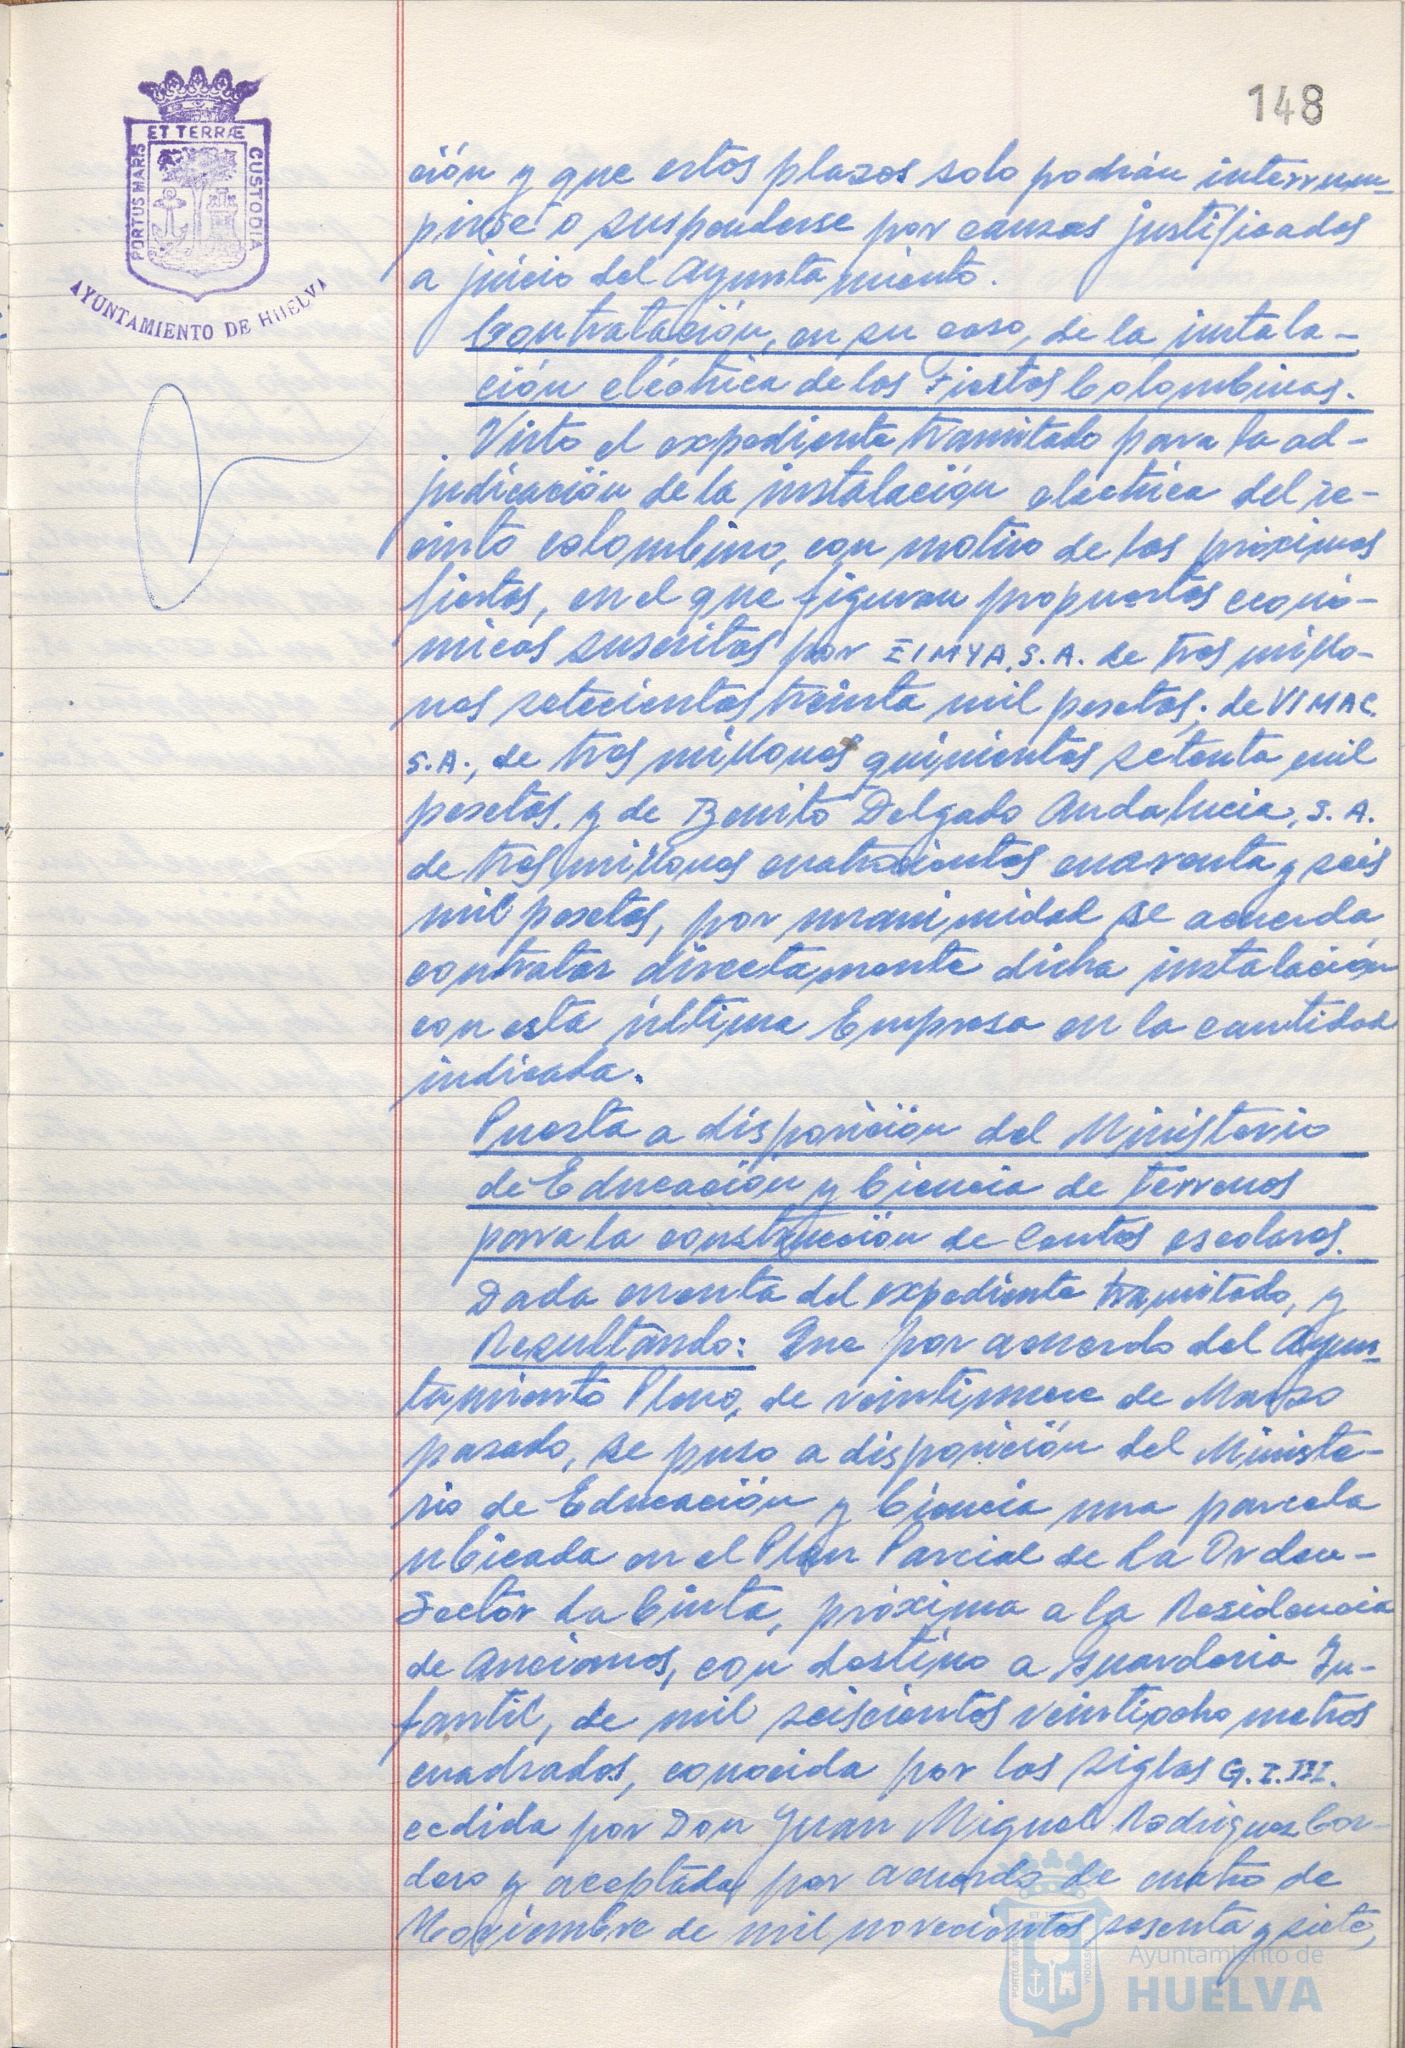 148
PORTUS MARIS ET TERRÆ CUSTODIA
AYUNTAMIENTO DE HUELVA
ción y que estos plazos solo podrán interrum-
pirse o suspenderse por causas justificadas
a juicio del Ayuntamiento.
Contratación, en su caso, de la instala-
ción eléctrica de las Fiestas Colombinas.
Visto el expediente tramitado para la ad-
judicación de la instalación eléctrica del re-
cinto colombino, con motivo de las próximas
fiestas, en el que figuran propuestas econó-
micas suscritas por EIMYA, S.A. de tres millo-
nes setecientas treinta mil pesetas; de VIMAC.
S.A., de tres millones quinientas setenta mil
pesetas, y de Benito Delgado Andalucia, S.A.
de tres millones cuatrocientas cuarenta y seis
mil pesetas, por unanimidad se acuerda
contratar directamente dicha instalación
con esta última Empresa en la cantidad
indicada.
Puesta a disposición del Ministerio
de Educación y Ciencia de terrenos
para la construcción de Centros escolares.
Dada cuenta del expediente tramitado, y
Resultando: Que por acuerdo del Ayun-
tamiento Pleno, de veintinueve de Marzo
pasado, se puso a disposición del Ministe-
rio de Educación y Ciencia una parcela
ubicada en el Plan Parcial de La Orden-
Sector La Cinta, próxima a la Residencia
de Ancianos, con destino a Guarderia In-
fantil, de mil seiscientos veintiocho metros
cuadrados, conocida por las siglas G.I.III.
cedida por Don Juan Miguel Rodriguez Cor-
dero y aceptada por acuerdo de cuatro de
Noviembre de mil novecientos sesenta y siete,
Ayuntamiento de
HUELVA